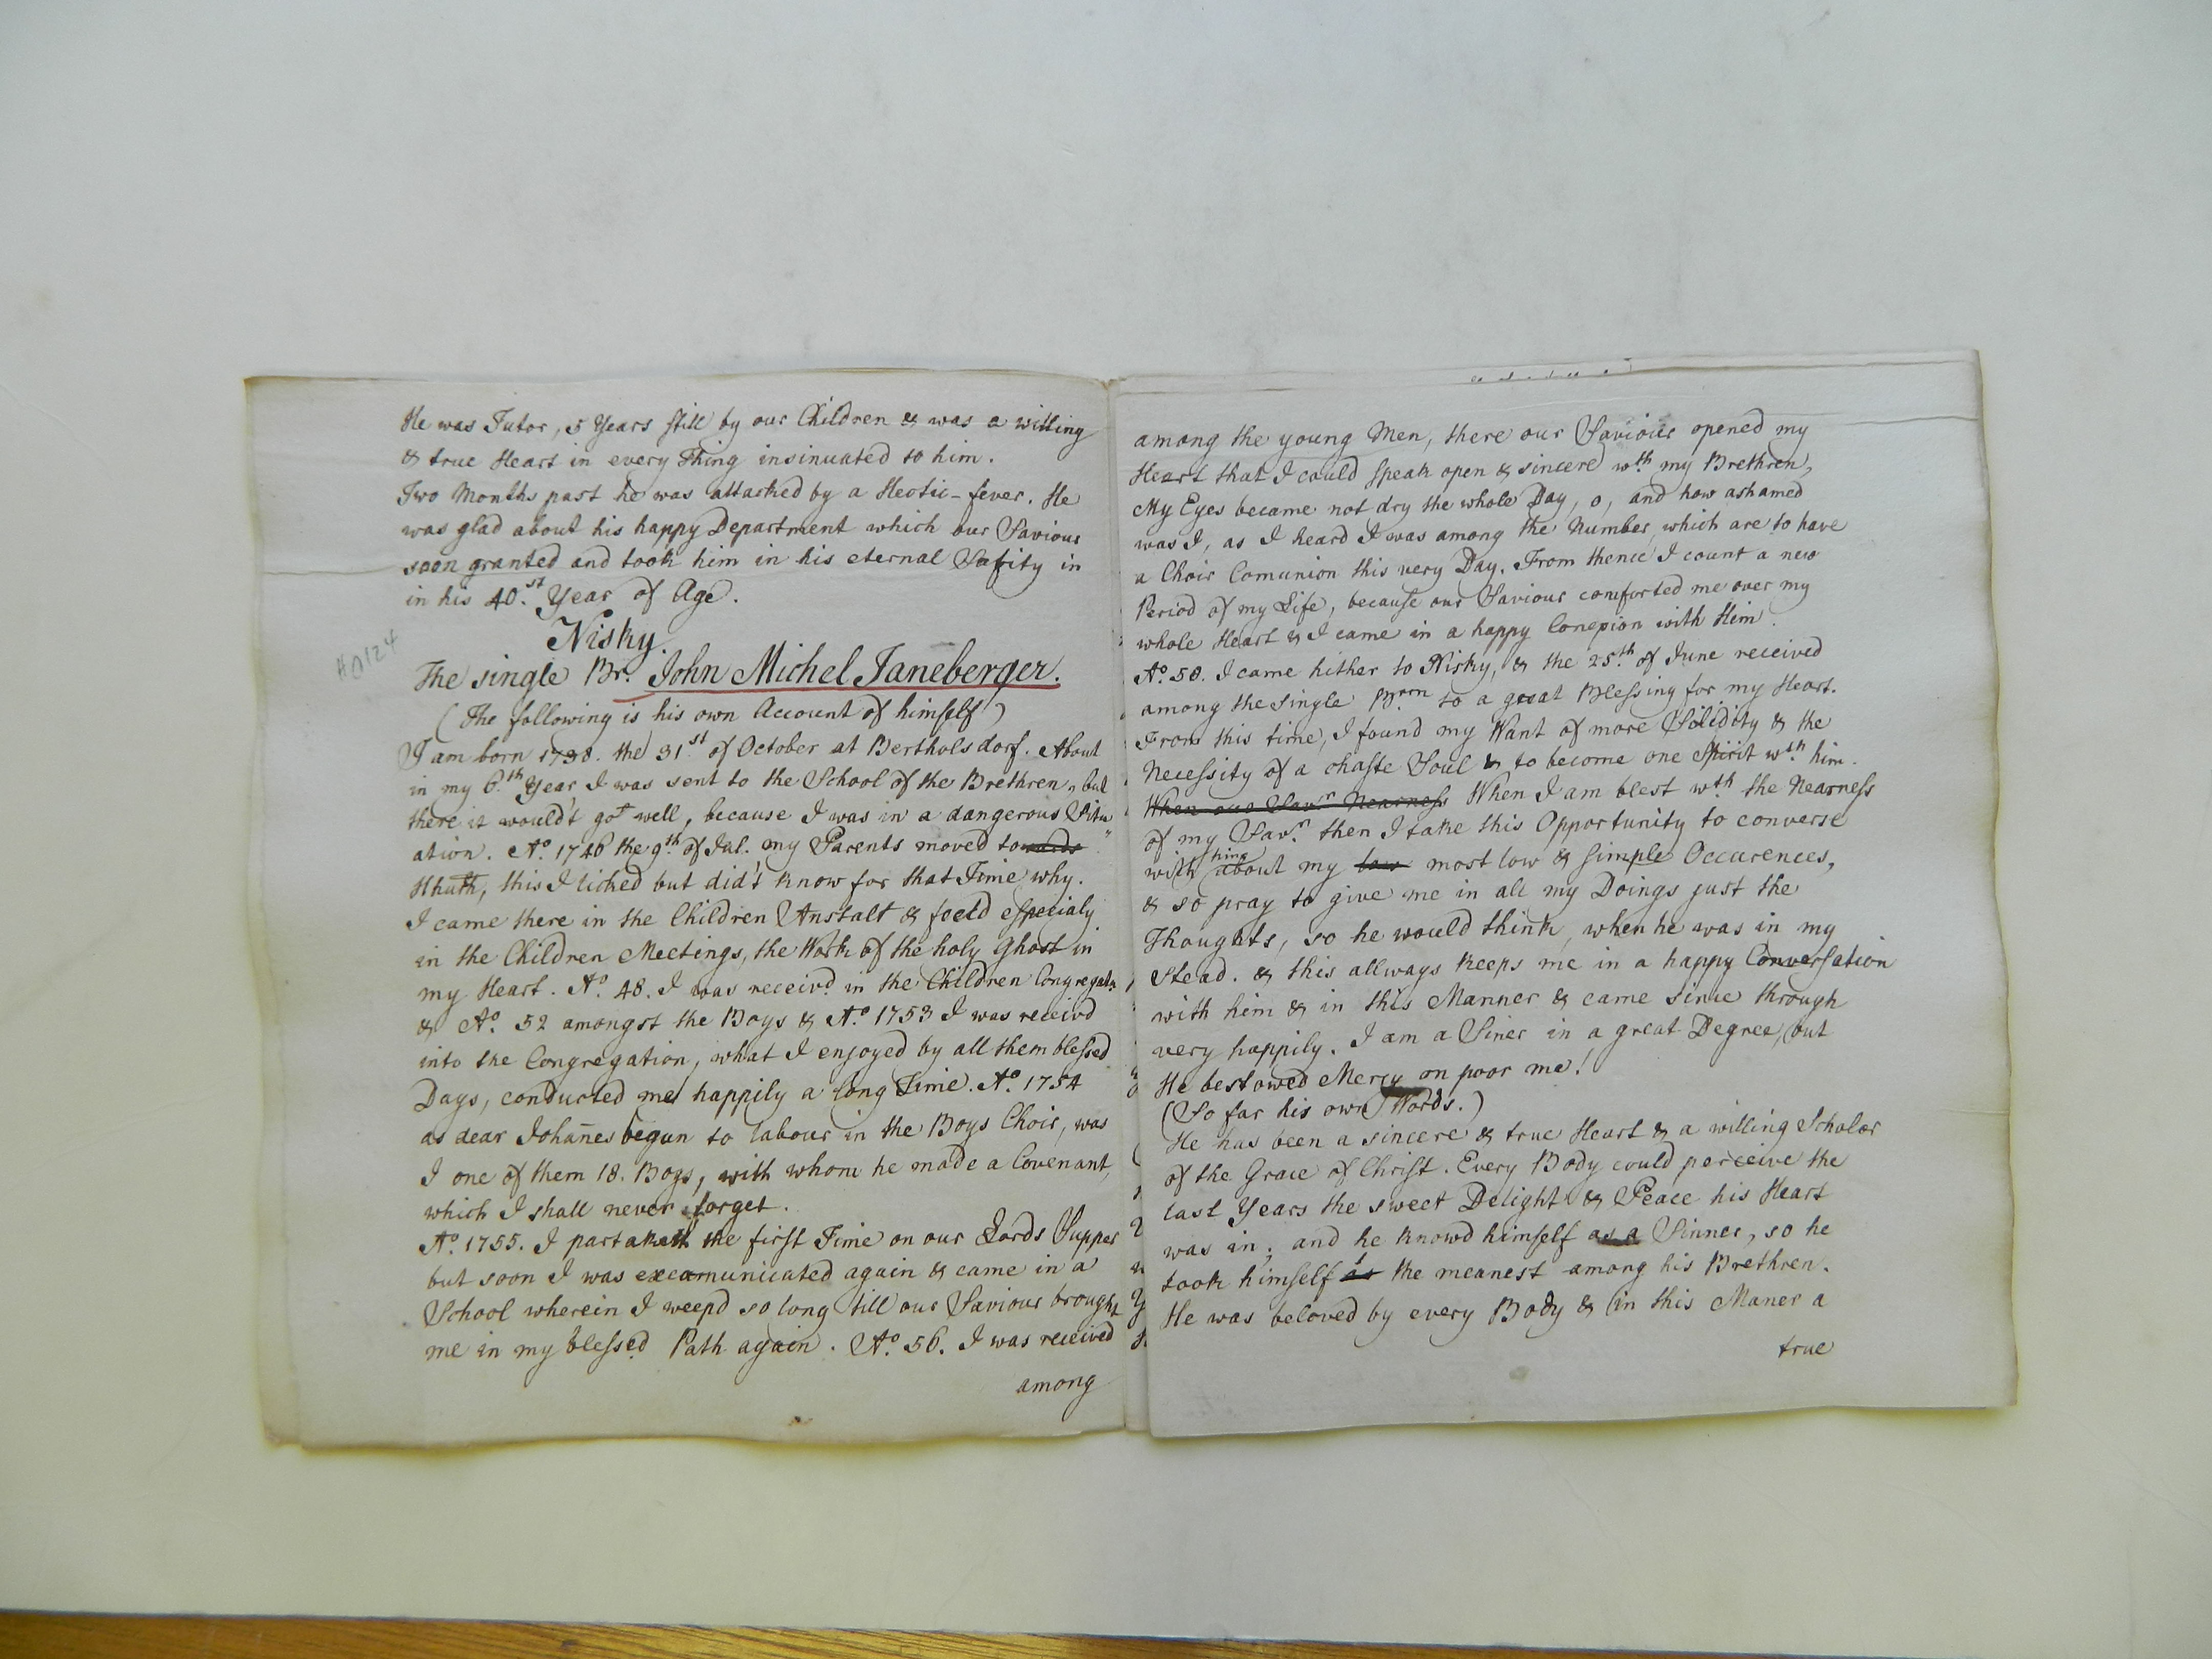 He was Tutor, 5 Years still by our Children & was a willing
& true Heart in every Thing insinuated to him.
Two Months past he was attacked by a Hectic-fever. He
was glad about his happy Department which our Saviour
soon granted and took him in his eternal Safity in
in his 40.st Year of Age.
Nisky.
H0124
The single Br. John Michel Janeberger.
(The following is his own Account of himself)
I am born 1738. the 31st of October at Bertholsdorf. About
in my 6.th Year I was sent to the School of the Brethren, but
there it would't got well, because I was in a dangerous Situ"
ation. Ao. 1746 the 9.th of Jul. my Parents moved towards
Hhuth, this I licked but did't know for that Time why.
I came there in the Children Anstalt & foeld especialy
in the Children Meetings, the Work of the holy Ghost in
my Heart. Ao. 48. I was receivd in the Children Congregatn.
& Ao. 52 amongst the Boys & Ao. 1753 I was receivd
into the Congregation, what I enjoyed by all them blessed
Days, conducted me happily a long Time. Ao. 1754
as dear Johañes begun to labour in the Boys Choir, was
I one of them 18. Boys, with whom he made a Covenant,
which I shall never forget.
Ao. 1755. I partaketh the first Time on our Lords Supper
but soon I was excomunicated again & came in a
School wherein I weepd so long till our Saviour brought
me in my blessed Path again. Ao. 56. I was received
among
among the young Men, there our Saviour opened my
Heart that I could speak open & sincere wth. my Brethren,
My Eyes became not dry the whole Day, o, and how ashamed
was I, as I heard I was among the Number, which are to have
a Choir Comunion this very Day. From thence I count a new
Period of my Life, because our Saviour comforted me over my
whole Heart & I came in a happy Conexion with Him.
Ao. 58. I came hither to Nisky, & the 25.th of June received
among the single Brrn to a great Blessing for my Heart.
From this time, I found my Want of more Solidity & the
Necessity of a chaste Soul & to become one Spirit wth. him.
When our Savr. Nearness When I am blest wth. the Nearness
of my Savr. then I take this Opportunity to converse
with him about my low most low & simple Occurences,
& so pray to give me in all my Doings just the
Thoughts, so he would think, when he was in my
stead. & this allways keeps me in a happy Conversation
with him & in this Manner & came since through
very happily. I am a Siner in a great Degree, but
He bestowed Mercy on poor me!
(So far his own Words.)
He has been a sincere & true Heart & a willing Scholar
of the Grace of Christ. Every Body could perceive the
last Years the sweet Delight & Peace his Heart
was in; and he knowd himself as a Sinner, so he
took himself as the meanest among his Brethren.
He was beloved by every Body & in this Maner a
true